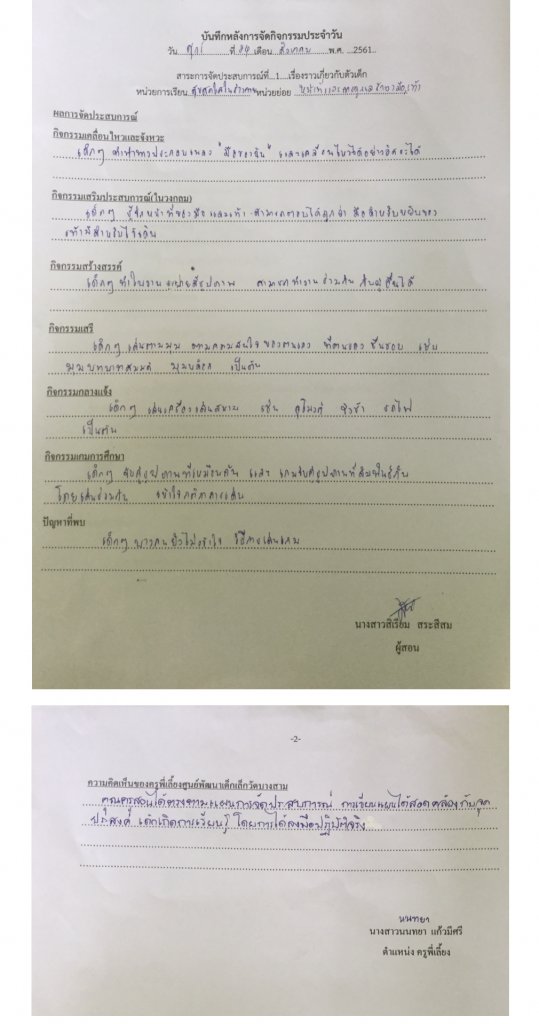 บันทึกหลังการจัดกิจกรรมประจำวัน
วัน ศุกร์ ที่ 24 เดือน สิงหาคม พ.ศ. 2561
สาระการจัดประสบการณ์ที่ 1 เรื่องราวเกี่ยวกับตัวเด็ก
หน่วยการเรียน หน่วยย่อย
ผลการจัดประสบการณ์
กิจกรรมเคลื่อนไหวและจังหวะ
เด็กๆ ทำท่าทางประกอบเพลง "มือของฉัน" และเคลื่อนไหวได้อย่างอิสระได้
กิจกรรมเสริมประสบการณ์(ในวงกลม)
เด็กๆ รู้จักหน้าที่ของมือและเท้า สามารถตอบได้ถูกว่า มือสำหรับหยิบของ
เท้ามีสำหรับไว้เดิน
กิจกรรมสร้างสรรค์
เด็กๆ ทำใบงาน ระบายสีรูปภาพ สามารถทำงานร่วมกับ กับผู้อื่นได้
กิจกรรมเสรี
เด็กๆ เล่นตามมุม ตามความสนใจของตนเอง ที่ตนเอง ชื่นชอบ เช่น
มุมบทบาทสมมติ มุมบล็อค เป็นต้น
กิจกรรมกลางแจ้ง
เด็กๆ เล่นเครื่องเล่นสนาม เช่น อุโมงค์ ชิงช้า รถไฟ
เป็นต้น
กิจกรรมเกมการศึกษา
เด็กๆ จับคู่รูปภาพที่เหมือนกัน และ เกมจับคู่รูปภาพที่สัมพันธ์กัน
โดยเล่นร่วมกัน เข้าใจกติกาการเล่น
ปัญหาที่พบ
เด็กๆ บางคนยังไม่เข้าใจ วิธีการเล่นเกม
นางสาวสิเรียม สระสีสม
ผู้สอน
-2-
ความคิดเห็นของครูพี่เลี้ยงศูนย์พัฒนาเด็กเล็กวัดบางสาม
คุณครูสอนได้ตรงตามแผนการจัดประสบการณ์ การเขียนแผนได้สอดคล้องกับจุด
ประสงค์ เด็กเกิดการเรียนรู้ โดยการได้ลงมือปฏิบัติจริง
นนทยา
นางสาวนนทยา แก้วมีศรี
ตำแหน่ง ครูพี่เลี้ยง